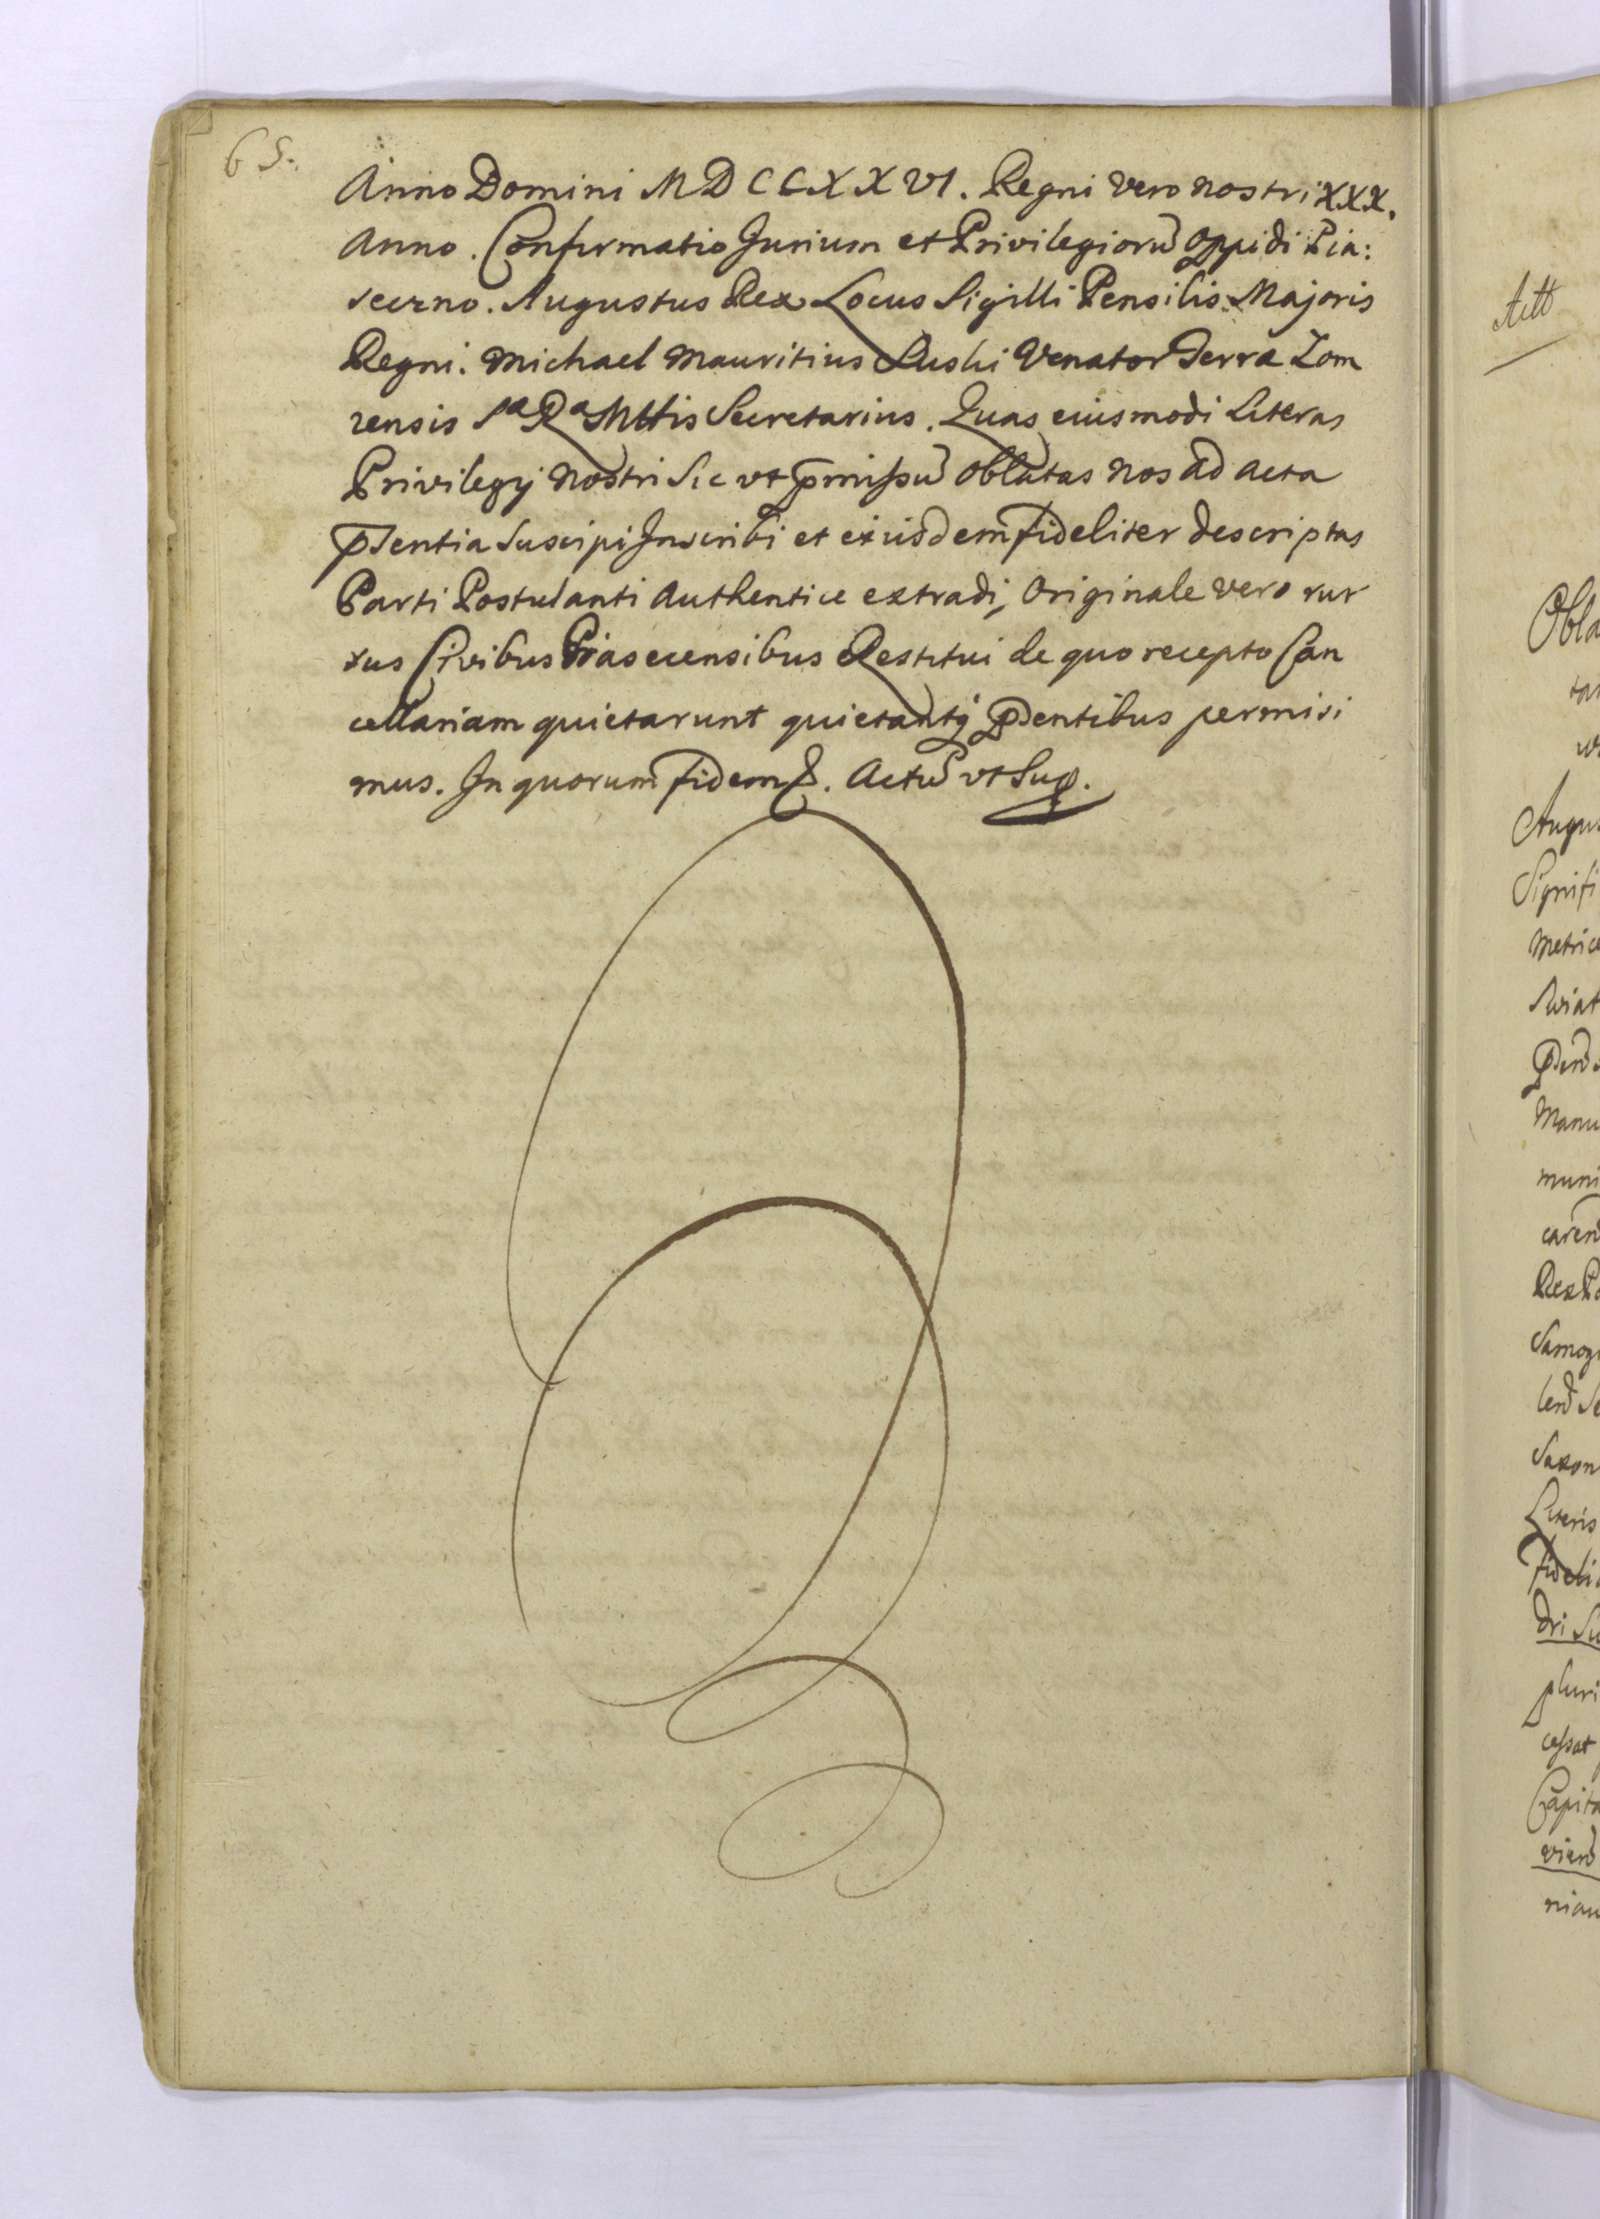 65.
Anno Domini MDCCXXVI. Regni vero nostri XXX.
Anno. Confirmatio Jurium et Privilegiorũ Oppidi Pia:
secrno. Augustus Rex Locus Sigilli Pensilis Majoris
Regni. Michael Mauritius Suski Venator Terra Lom
zensis Sa Ra Mttis Secretarius. Quas eiusmodi Literas
Privilegij nostri Sic vt p̃missũ oblatas nos ad acta
p̃sentia suscipi Inscribi et exinde fideliter descriptas
Parti Postulanti Authentice extradi, Originale vero rur
sus Civibus Piasecensibus Restitui de quo recepto Can
cellariam quietarunt quietantq̃ p̃sentibus permisi
mus. In quorum fidem &. Actũ vt Sup.
Actt
Obla
Augus
Signifi
Metrice
Swiat
Manu
muni
Samogi
Saxon
Literis
pluri
cessat
Capita